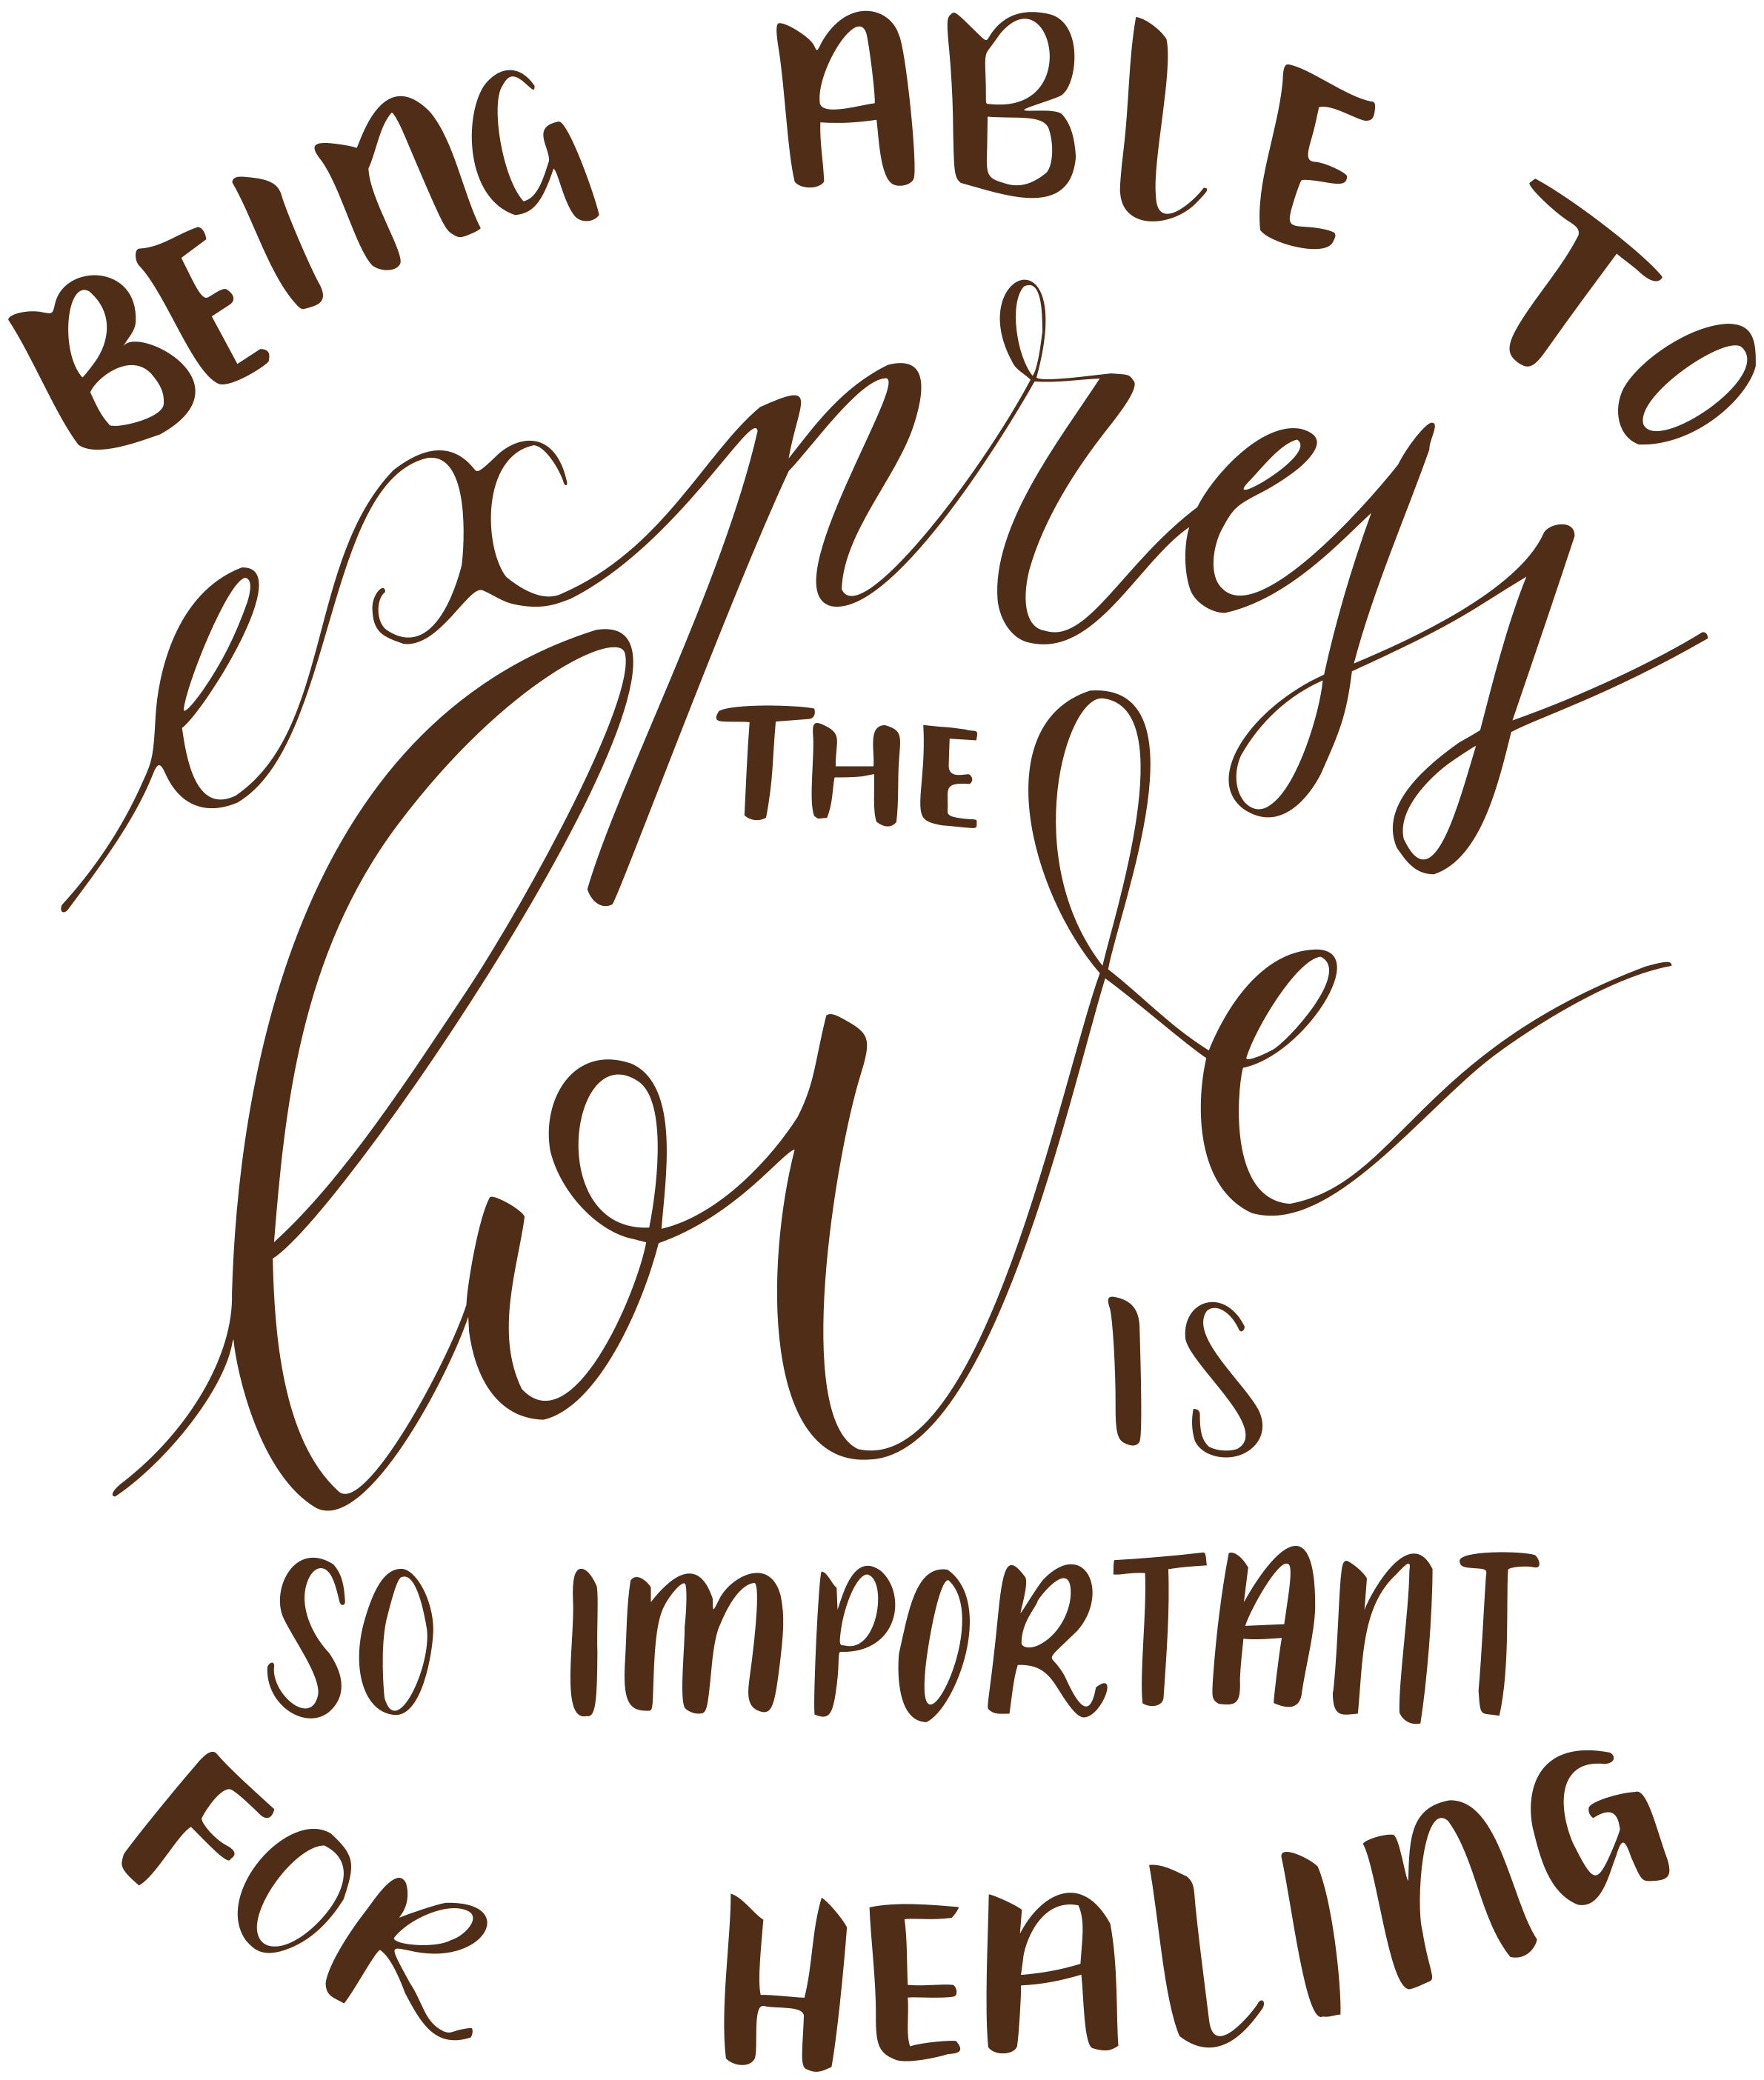 BEING ABLE TO
express
THE
love
IS
SO IMPORTANT
FOR HEALING